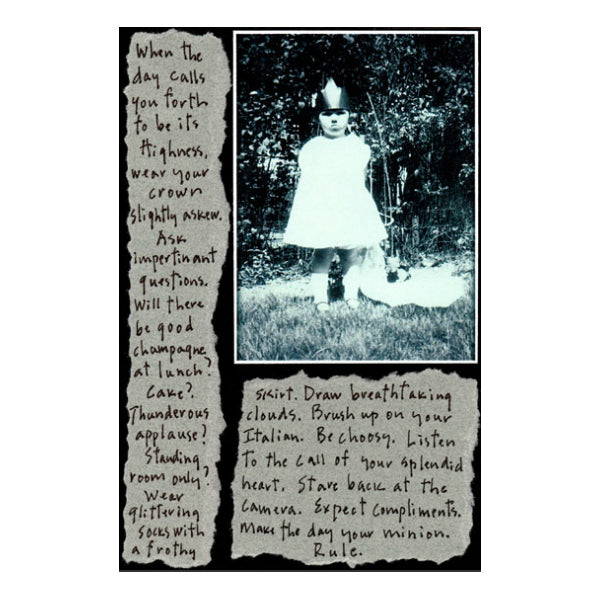 When the
day calls
you forth
to be its
Highness,
wear your
crown
slightly askew.
Ask
impertinant
questions.
Will there
be good
champagne
at lunch?
Cake?
Thunderous
applause?
Standing
room only?
Wear
glittering
socks with
a frothy
skirt. Draw breathtaking
clouds. Brush up on your
Italian. Be choosy. Listen
to the call of your splendid
heart. Stare back at the
camera. Expect compliments.
Make the day your minion.
Rule.